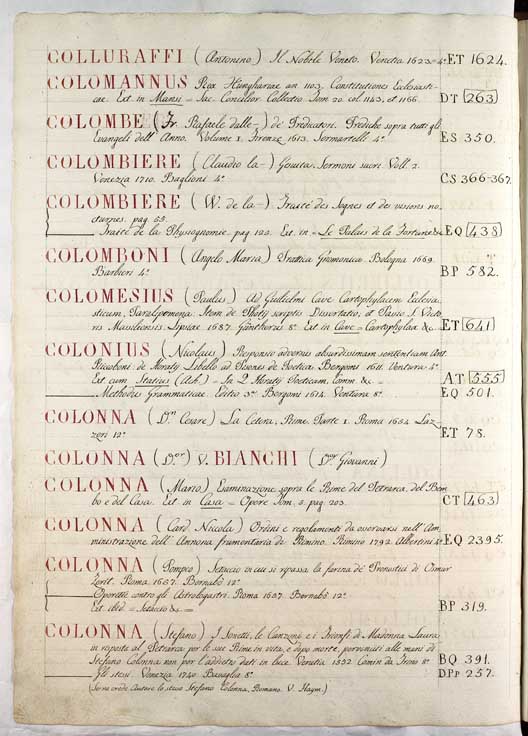 COLLURAFFI (Antonino) Il Nobile Veneto. Venetia 1623. 4º ET 1624.
COLOMANNUS Rex Hunghariae an 1103. Constitutiones Ecclesiasti-
cae. Ext. in Mansi = Sac. Concilior Collectio Tom 20. col 1143. et 1166. DT 263
COLOMBE (Fr. Rafaele dalle-) de' Predicatori. Prediche sopra tutti gli
Evangeli dell'Anno. Volume I. Firenze 1613. Sermartelli 4º ES 350.
COLOMBIERE (Claudio la-) Gesuita. Sermoni sacri Voll. 2.
Venezia 1710. Baglioni 4º CS 366-367.
COLOMBIERE (W. de la-) Traité des Songes et des visions no-
cturnes. pag. 55.
Traité de la Physiognomie. pag 122. Ext. in = Le Palais de la Fortune &. EQ 438
COLOMBONI (Angelo Maria) Prattica Gnomonica. Bologna 1669.
Barbieri 4º BP 582.
COLOMESIUS (Paulus) Ad Guilielmi Cave Cartophylacem Ecclesia-
sticum, Paralipomena. Item de Photy scriptis Dissertatio, et Passio S. Victo-
ris Massiliensis. Lipsiae 1687. Günthorus 8º Ext in Cave = Cartophylax &c. ET 641
COLONIUS (Nicolaus) Responsio adversus absurdissimam sententiam Ant.
Riccoboni de Horaty Libello ad Pisones de Poetica Bergomi 1611. Ventura 4º
Ext cum Statius (Ach.) = In Q Horaty Poeticam. Comm &c. = AT 555
Methodus Grammaticae. Editio 3ª Bergomi 1614. Ventura 8º EQ 501.
COLONNA (Dn Cesare) La Cetera, Rime. Parte I. Roma 1654 Laz-
zeri 12º ET 78.
COLONNA (Dor) V. BIANCHI (Dor Giovanni)
COLONNA (Mario) Esaminazione sopra le Rime del Petrarca, del Bem-
bo e del Casa. Ext in Casa = Opere Tom. 5. pag 203. CT 463
COLONNA (Card Nicola) Ordini e regolamenti da osservarsi nell'Am-
ministrazione dell'Annona frumentaria di Rimino. Rimino 1792. Albertini 4º EQ 2395.
COLONNA (Pompeo) Setaccio in cui si ripassa la farina de' Pronostici di Osmar
Roma 1667. Bernabò 12º
Operette contro gli Astrologastri. Roma 1667. Bernabò 12º
Ext ibid = Setaccio &c = BP 319.
COLONNA (Stefano) I Sonetti, le Canzoni e i Trionfi di Madonna Laura
in risposta al Petrarca per le sue Rime in vita, e dopo morte, pervenuti alle mani di
Stefano Colonna non per l'addietro dati in luce. Venetia 1552 Comin da Trino 8º BQ 391.
Gli stessi. Venezia 1740 Bavaglia 8º DPp 257.
(Se ne crede Autore lo stesso Stefano Colonna, Romano. V. Haym.)